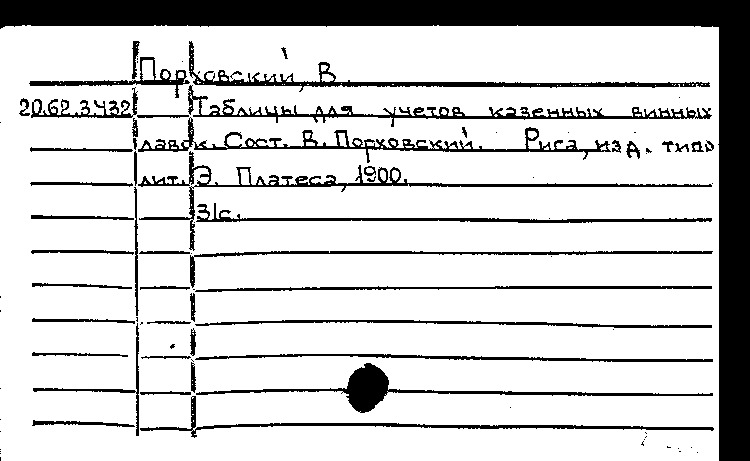 Порховский, В.
20.62.3432 Таблицы для учетов казенных винных
лавок. Сост. В. Порховский. Рига, изд. типо
лит. Э. Платеса, 1900.
31с.